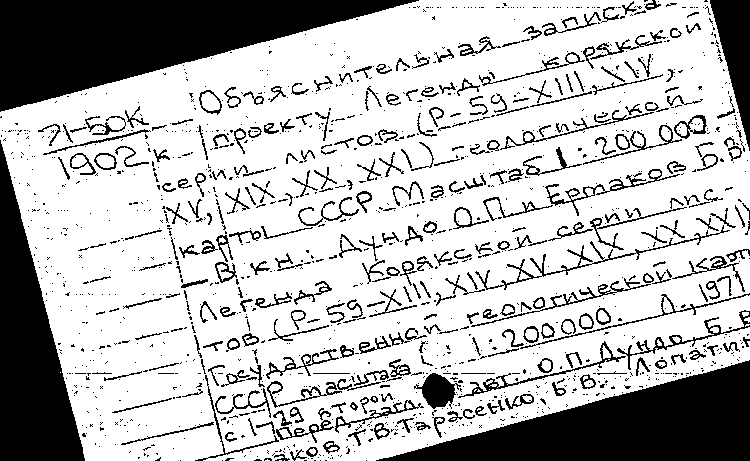 71-50К
1902
Объяснительная записка
к проекту Легенды корякской
серии листов (Р-59-XIII, XIV,
XV, XIX, XX, XXI) геологической
карты СССР. Масштаб 1:200 000.-
- В кн.: Дундо О.П и Ермаков Б.В
Легенда Корякской серии лис-
тов (Р-59-XIII, XIV, XV, XIX, XX, XXI)
Государственной геологической карт
СССР масштаба 1:200000. Л., 1971
с. 1-29 второй
Перед загл. авт.: О.П. Дундо, Б.В
Т.В. Тарасенко, Б.В. Лопатин